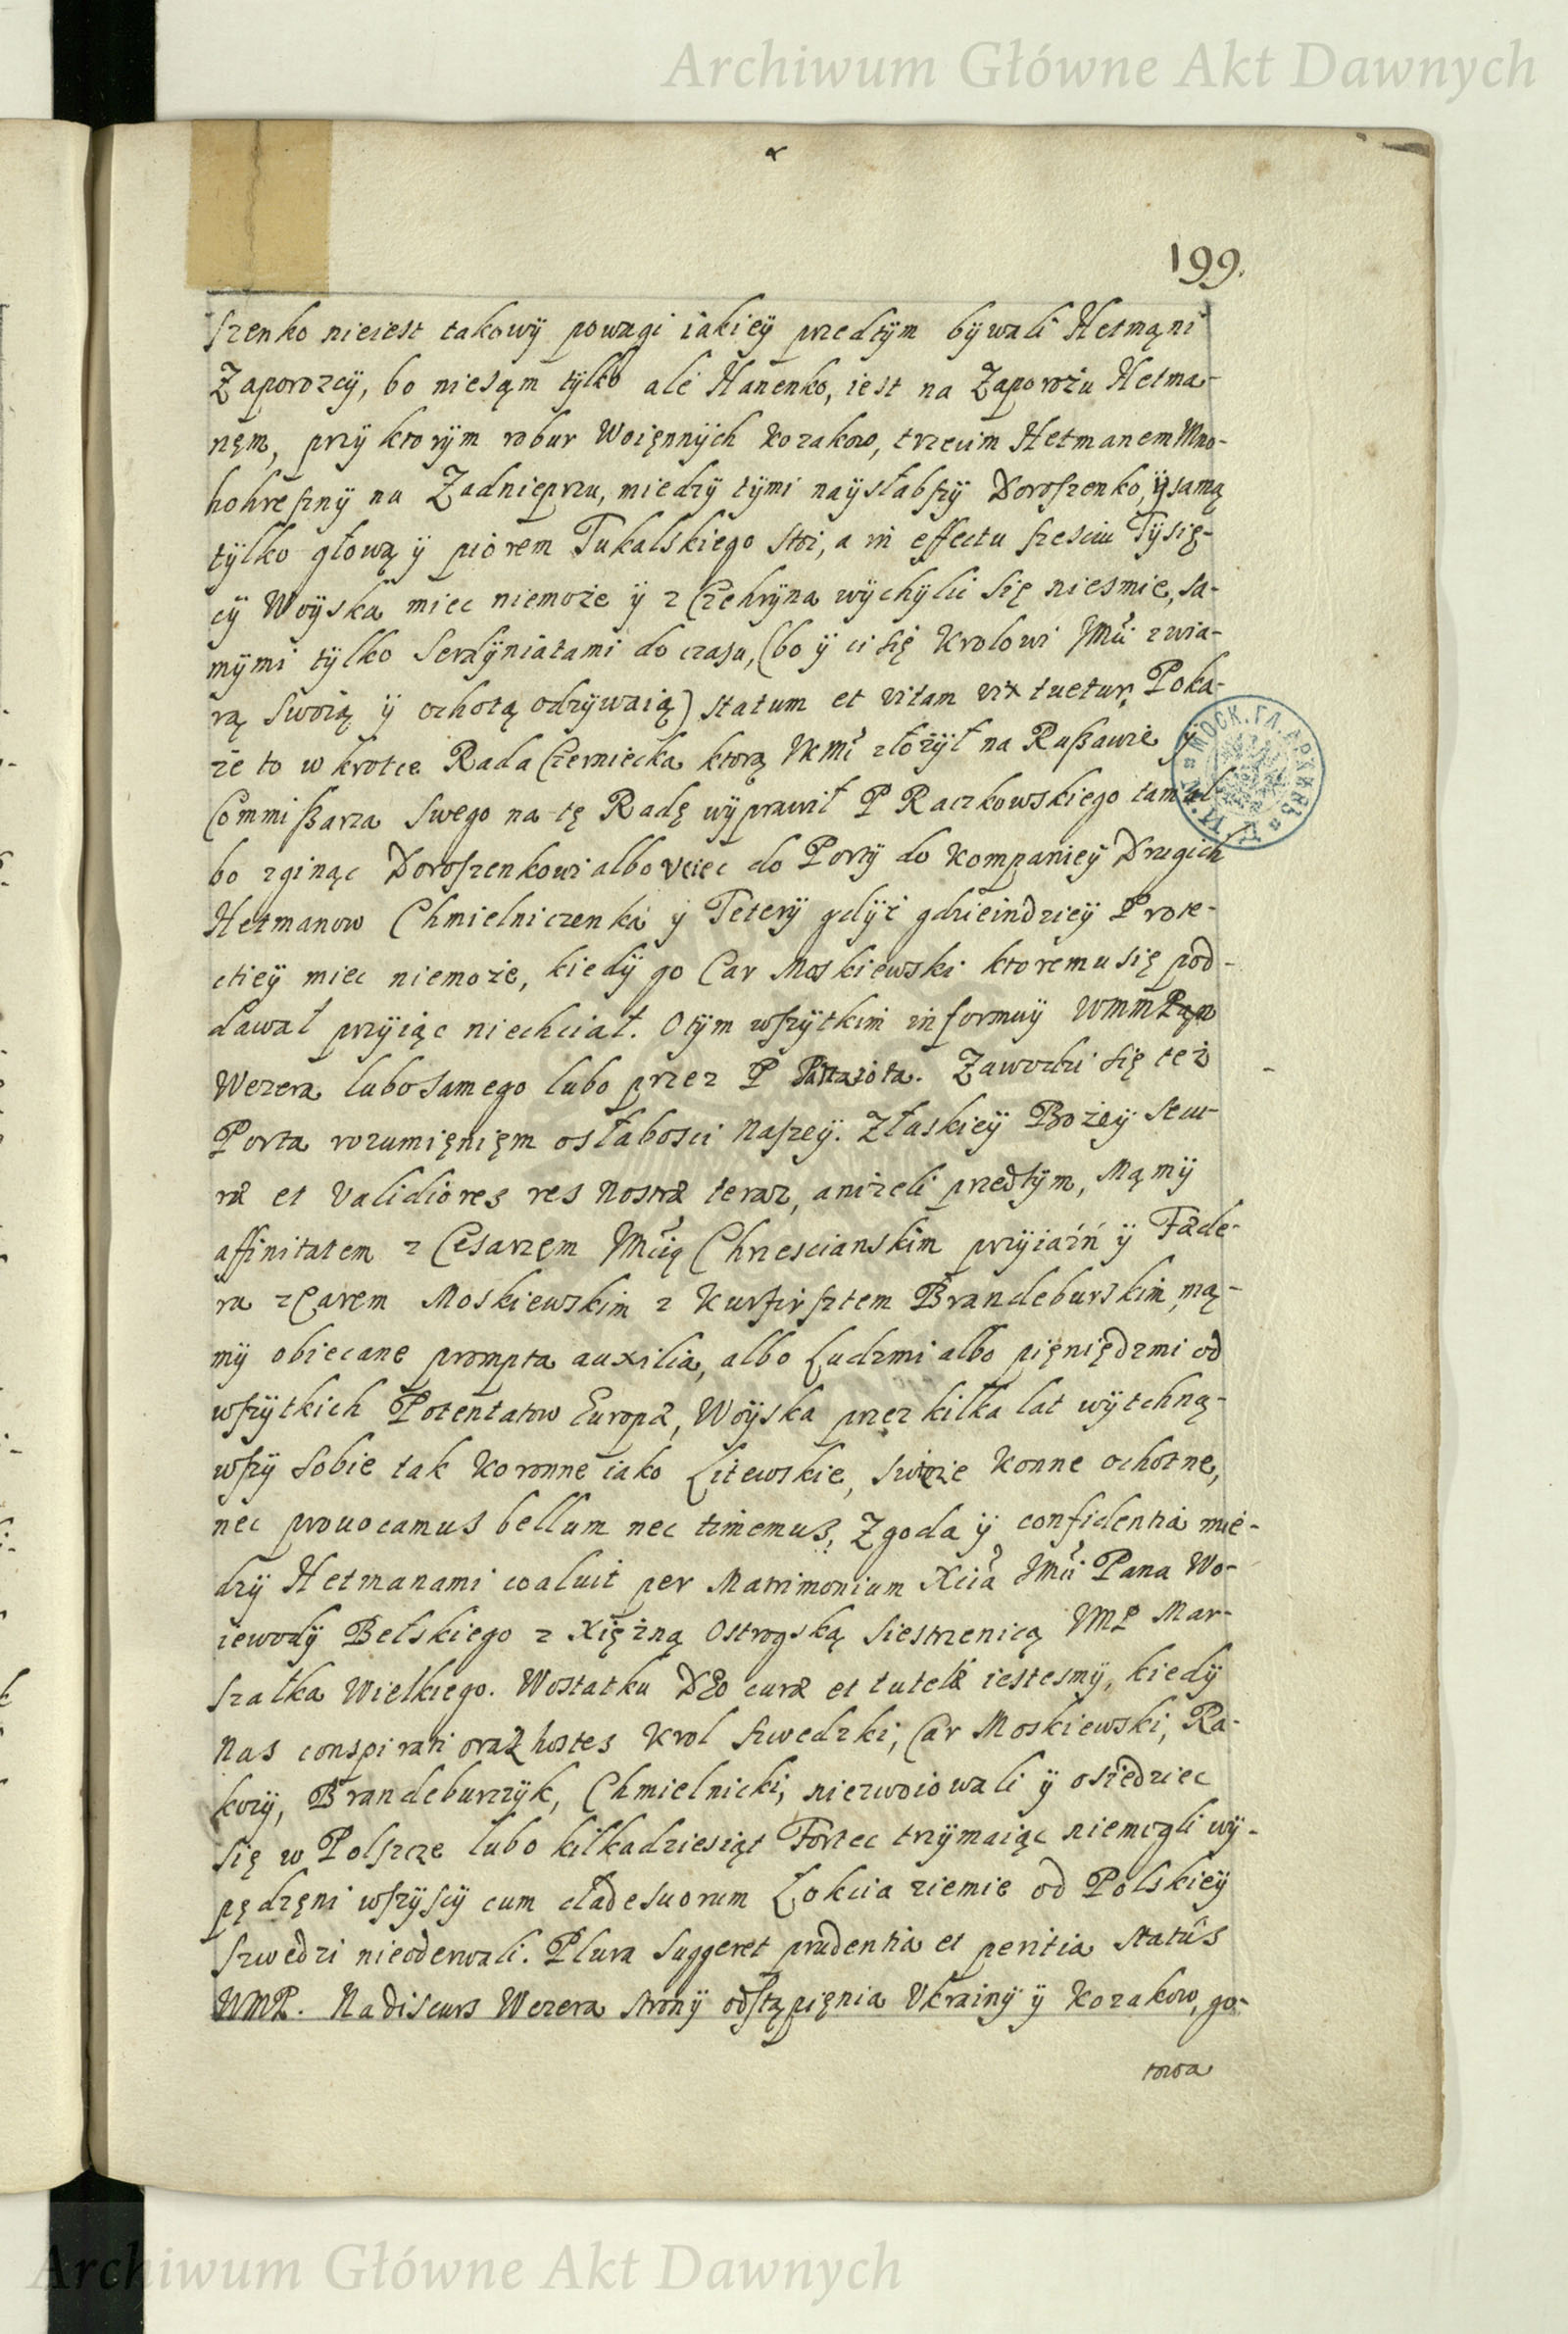 Archiwum Główne Akt Dawnych
199.
szenko nieiest takowÿ powagi iakieÿ przedtÿm bÿwali Hetmąni
Zaporozcÿ, bo niesąm tÿlko ale Hanenko, iest na Zaporożu Hetma-
nęm, przÿ ktorÿm robur Woięnnÿch Kozakow, trzecim Hetmanem Mno-
hohresznÿ na Zadnieprzu, miedzÿ tÿmi naÿsłabszÿ Doroszenko, ÿ samą
tÿlko głową ÿ piorem Tukalskiego stoi, a in effectu szesciu Tÿsię-
cÿ Woÿska miec niemoże ÿ z Czehrÿna wÿchÿlic się niesmie, sa-
mÿmi tÿlko Serdÿniatami do czasu, (bo ÿ ci się Krolowi JMci z wia-
rą swoią ÿ ochotą odzÿwaią) statum et vitam vix tuetur, Poka-
że to w krotce Rada Czerniecka ktorą JKMć złożÿł na Rußawie ÿ
Commißarza swego na tę Radę wÿprawił P Raczkowskiego tam al-
bo zginąc Doroszenkowi albo uciec do Portÿ do Kompanieÿ Drugich
Hetmanow Chmielniczenka ÿ Teterÿ gdÿż gdzieindzieÿ Prote-
ctieÿ miec niemoże, kiedÿ go Car Moskiewski ktoremu się pod-
dawał przÿiąc niechciał. Otÿm wszÿtkim informuÿ WMMPan
Wezera lubo samego lubo przez P Panaiota. Zawodzi się też
Porta rozumięnięm osłabosci Naszeÿ. Złaskieÿ Bożeÿ secu-
ræ et validiores res Nostræ teraz, aniżeli przedtÿm, Mąmÿ
affinitatem z Cesarzęm JMcią Chrzescianskim przÿiaźń ÿ Fæde-
ra z Carem Moskiewskim z Kurfirsztem Brandeburskim, mą-
mÿ obiecane prompta auxilia, albo Ludzmi albo pięniędzmi od
wszÿtkich Potentatow Europæ, Woÿska przez kilka lat wÿtchną-
wszÿ sobie tak Koronne iako Litewskie, swieże Konne ochotne,
nec prouocamus bellum nec timemus, Zgoda ÿ confidentia mie-
dzÿ Hetmanami coaluit per Matrimonium Xcia JMci Pana Wo-
iewodÿ Bełskiego z Xiężną Ostrogską Siestrzenicą JMP Mar-
szałka Wielkiego. Wostatku Deo curæ et tutelæ iestesmÿ, kiedÿ
Nas conspirati oraz hostes Krol Szwedzki, Car Moskiewski, Ra-
kocÿ, Brandeburczÿk, Chmielnicki, niezwoiowali ÿ osiedziec
się w Polszcze lubo kilkadziesiąt Fortec trzÿmaiąc niemogli wÿ-
pędzęni wszÿscÿ cum clade suorum Łokcia ziemie od Polskieÿ
Szwedzi nieoderwali. Plura suggeret prudentia et peritia statûs
WMP. Na discurs Wezera stronÿ odstąpięnia Ukrainÿ ÿ Kozakow, go-
towa
Archiwum Główne Akt Dawnych